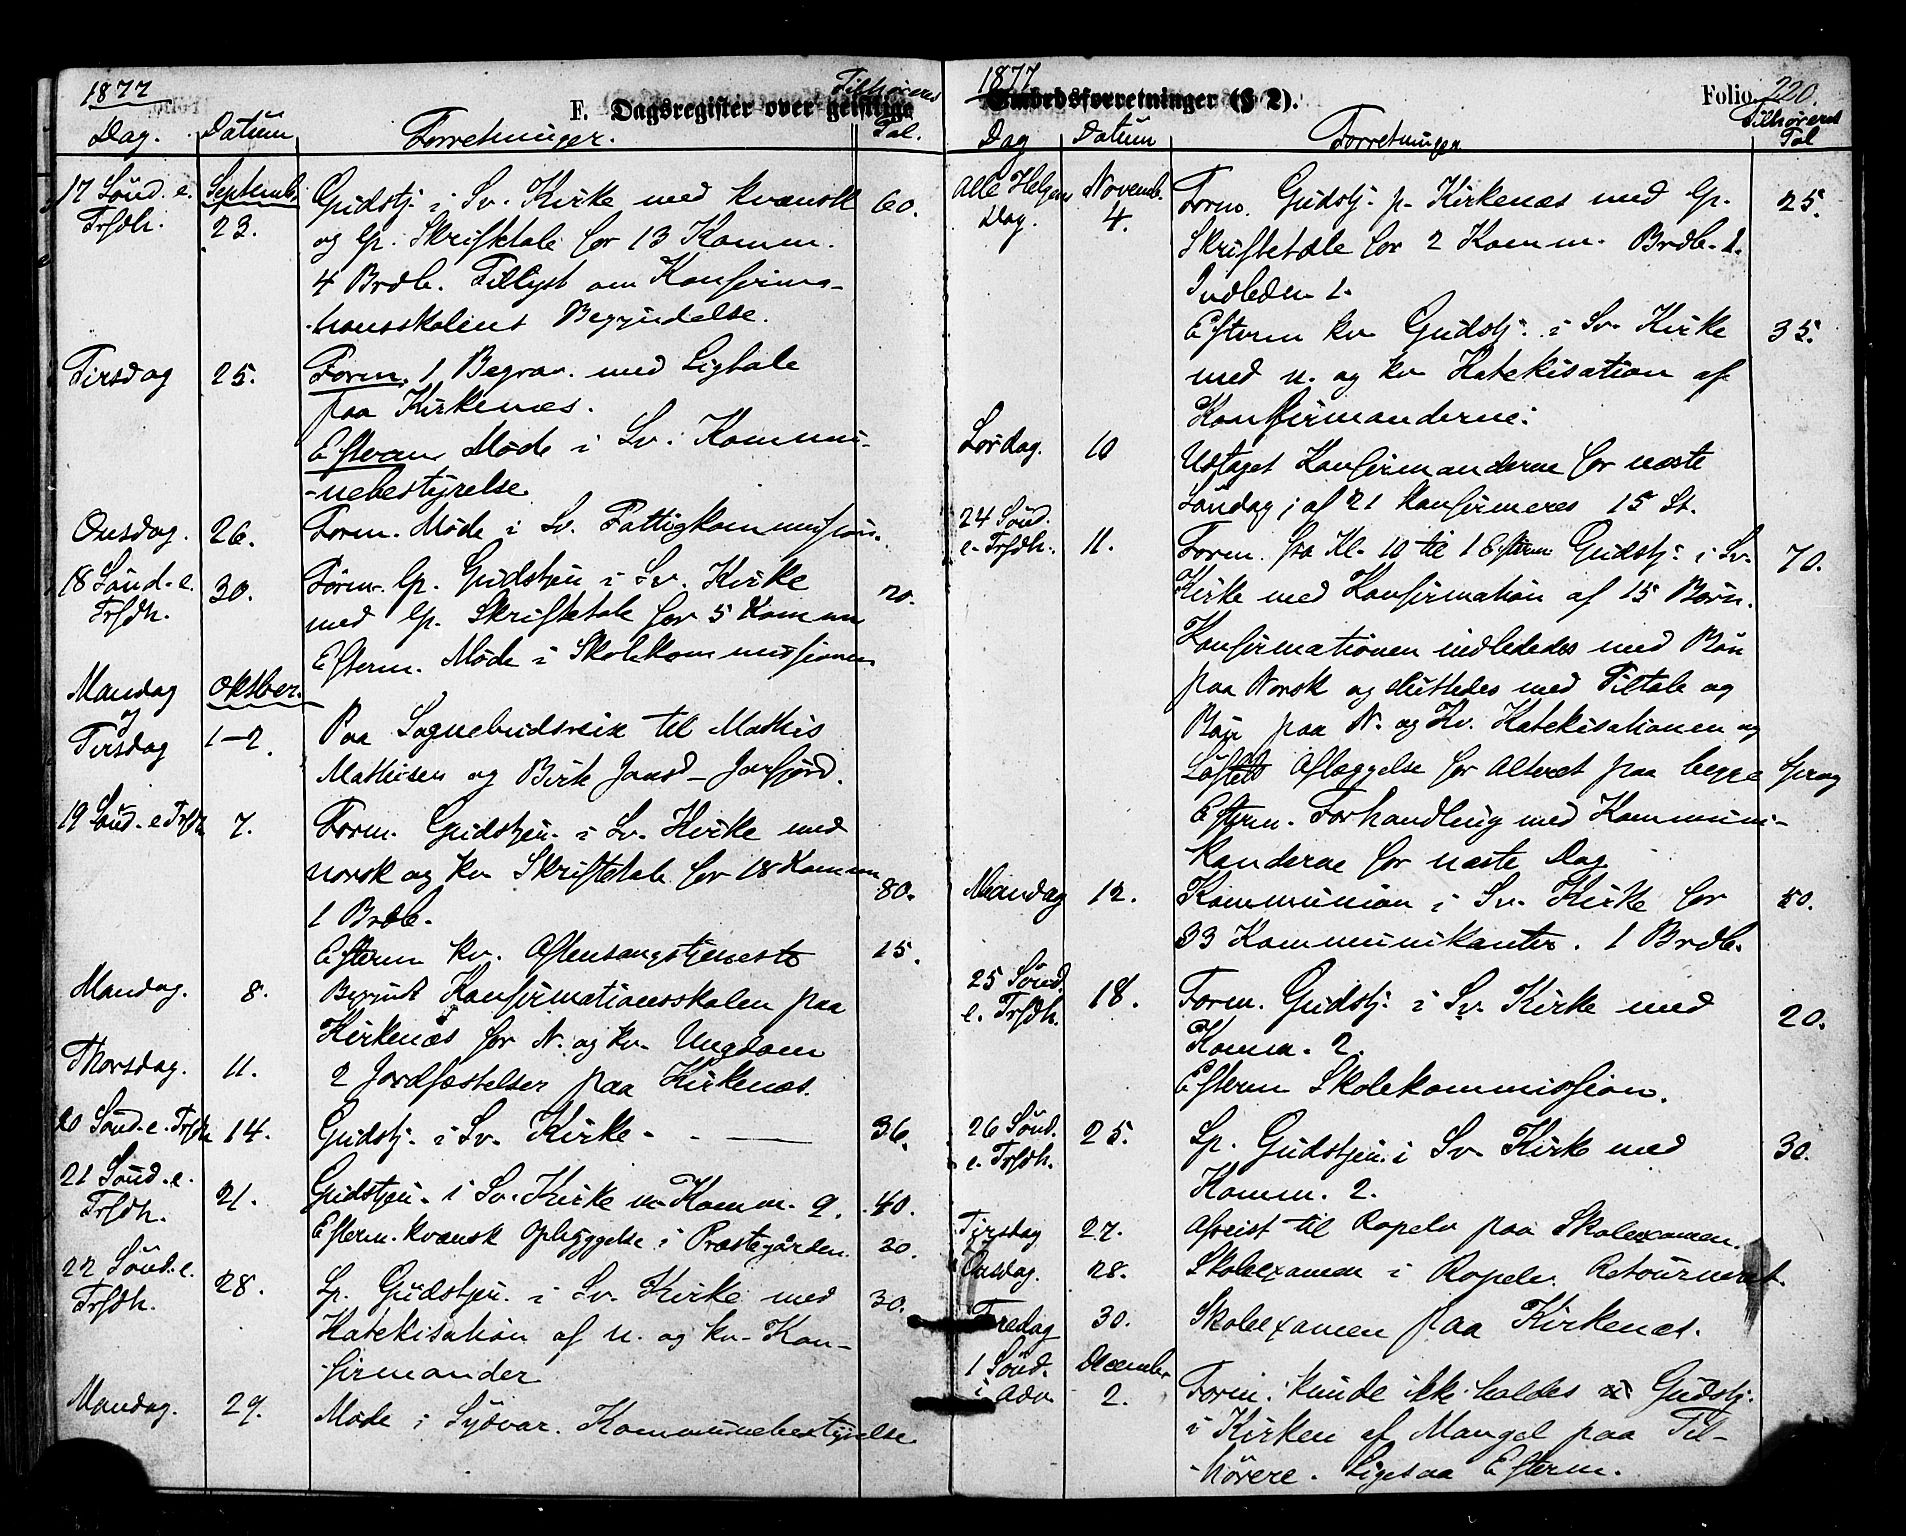 1877
F. Dagsregister over geistlige
Tilhøreres
Dag. Datum Forretninger. Tal.
17 Sønd. e. Septemb. Gudstj. i Sv. Kirke med kvænsk 60.
Trfdh. 23. og lp. Skriftetale for 13 Komm.
4 Brdb. Tillyst om Konfirma-
-tionsskolens Begyndelse.
Tirsdag 25. Form. 1 Begrav. med Ligtale
paa Kirkenæs.
Efterm. Møde i Sv. Kommu-
-nebestyrelse
Onsdag. 26. Form. Møde i Sv. Fattigkommission.
18 Sønd. e. 30. Form. lp. Gudstjen i Sv. Kirke 20.
Trfdh. med lp. Skriftetale for 5 Komm
Efterm. Møde i Skolekommissionen
Mandag Oktober.
og
Tirsdag 1-2. Paa Sognebudsreise til Mathis
Mathisen og Berit Jonsd- Jarfjord.
19 Sønd. e Trfdh 7. Form. Gudstjen. i Sv. Kirke med
norsk og kv Skriftetale for 18 Komm 80.
1 Brdb.
Efterm kv. Aftensangstjeneste 15.
Mandag. 8. Begyndt Konfirmationsskolen paa
Kirkenæs for N. og kv. Ungdom
Thorsdag. 11. 2 Jordfæstelser paa Kirkenæs.
20 Sønd. e. Trfdh 14. Gudstj. i Sv. Kirke - - — 36.
21 Sønd. e.
Trfdh. 21. Gudstjen. i Sv. Kirke m Komm. 9. 40.
Efterm. kvænsk Opbyggelse i Præstegården 20.
22 Sønd. e.
Trfdh. 28. Lp. Gudstjen. i Sv. Kirke med 30.
Katekisation af n. og kv. Kon-
-firmander
Mandag. 29. Møde i Sydvar. Kommunebestyrelse
1877
Embedsforretninger (§ 2). Folio 220.
Tilhøreres
Dag Datum Forretninger Tal
Alle Helgens Novemb. Form. Gudstj. p. Kirkenæs med lp. 25.
Dag. 4. Skriftetale for 2 Komm. Brdb. 1.
Indleden 1.
Efterm kv Gudstj. i Sv. Kirke 35.
med n. og kv Katekisation af
Konfirmanderne.
Lørdag. 10 Udtaget Konfirmanderne for næste
Søndag; af 21 konfirmeres 15 St.
24 Sønd.
e. Trfdh. 11. Form. fra Kl. 10 til 1 Efterm Gudstj. i Sv. 70.
Kirke med Konfirmation af 15 Børn.
Konfirmationen indlededes med Bøn
paa Norsk og sluttedes med Tiltale og
Bøn paa N. og Kv. Katekisationen og
Løftets Aflæggelse for Alteret paa begge Sprog
Efterm. Forhandling med Kommuni-
kanderne for næste Dag
Mandag 12. Kommunion i Sv. Kirke for 50.
33 Kommunikanter. 1 Brdb.
25 Sønd.
e. Trfdh. 18. Form. Gudstj. i Sv. Kirke med 20.
Komm. 2.
Efterm Skolekommission.
26 Sønd. 25. Lp. Gudstjen. i Sv Kirke med 30.
e. Trfdh. Komm. 2.
Tirsdag 27. Afreist til Ropelv paa Skolexamen.
Onsdag. 28. Skolexamen i Ropelv. Retourneret.
Fredag 30. Skolexamen paa Kirkenæs.
1 Sønd. December
i Adv 2. Form. kunde ikke holdes Gudstj.
i Kirken af Mangel paa Til-
-hørere. Ligesaa Efterm.